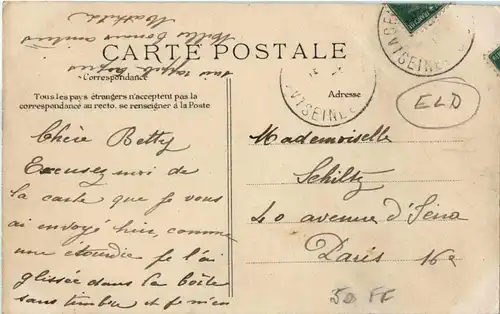 CARTE POSTALE
Correspondance
Tous les pays étrangers n'acceptent pas la
correspondance au recto. se renseigner à la Poste
Chère Betty
Excusez moi de
la carte que je vous
ai envoyé hier, comme
une étourdie je l'ai
glissée dans la boîte
sans timbre et je
Mille bonnes amitiés
Mathilde
Adresse
ELD
Mademoiselle
Schiltz
40 avenue d'Iéna
Paris 16e
50 FF